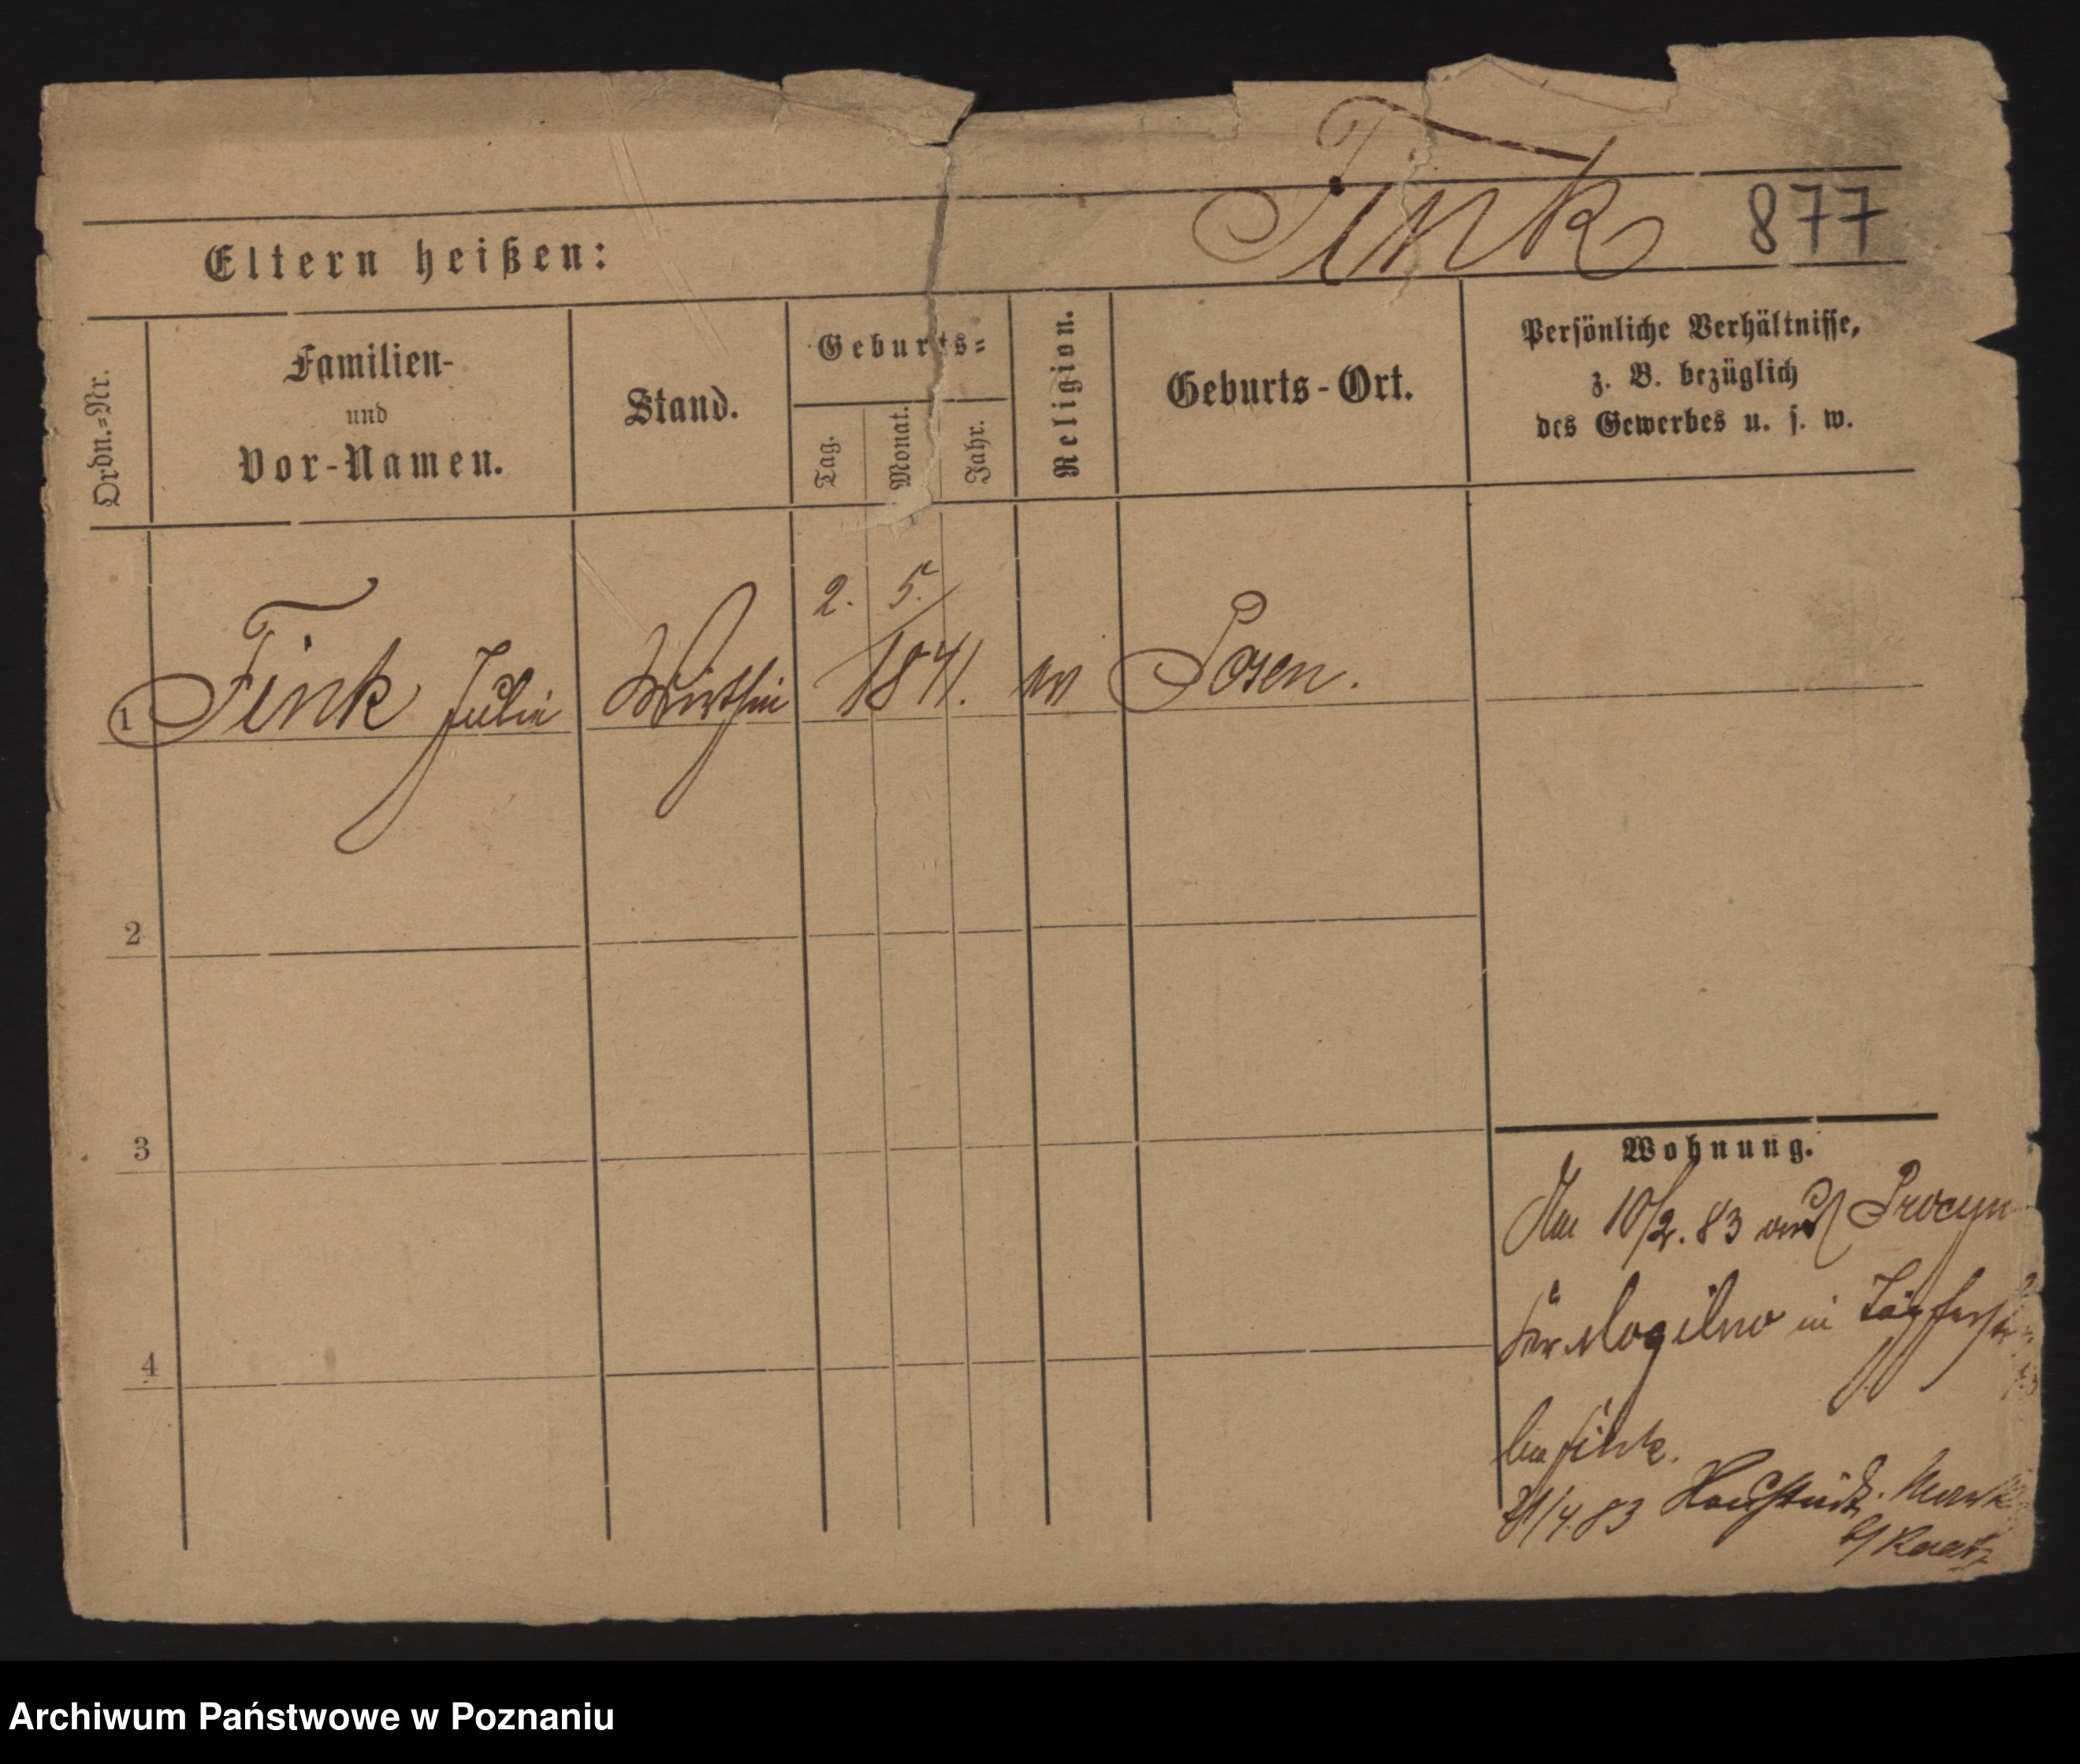 Fink 877
Eltern heißen:
Ordn.=Nr.
Familien-
und
Vor-Namen.
Stand.
Geburts=
Tag.
Monat.
Jahr.
Religion.
Geburts-Ort.
Persönliche Verhältnisse,
z. B. bezüglich
des Gewerbes u. s. w.
2. 5.
1 Fink Julie Wirthin 1841. ev Posen.
2
3
4
Wohnung.
Am 10/2. 83 aus Procyn
für Mogilno in
bei Fink.
21/4.83
Archiwum Państwowe w Poznaniu